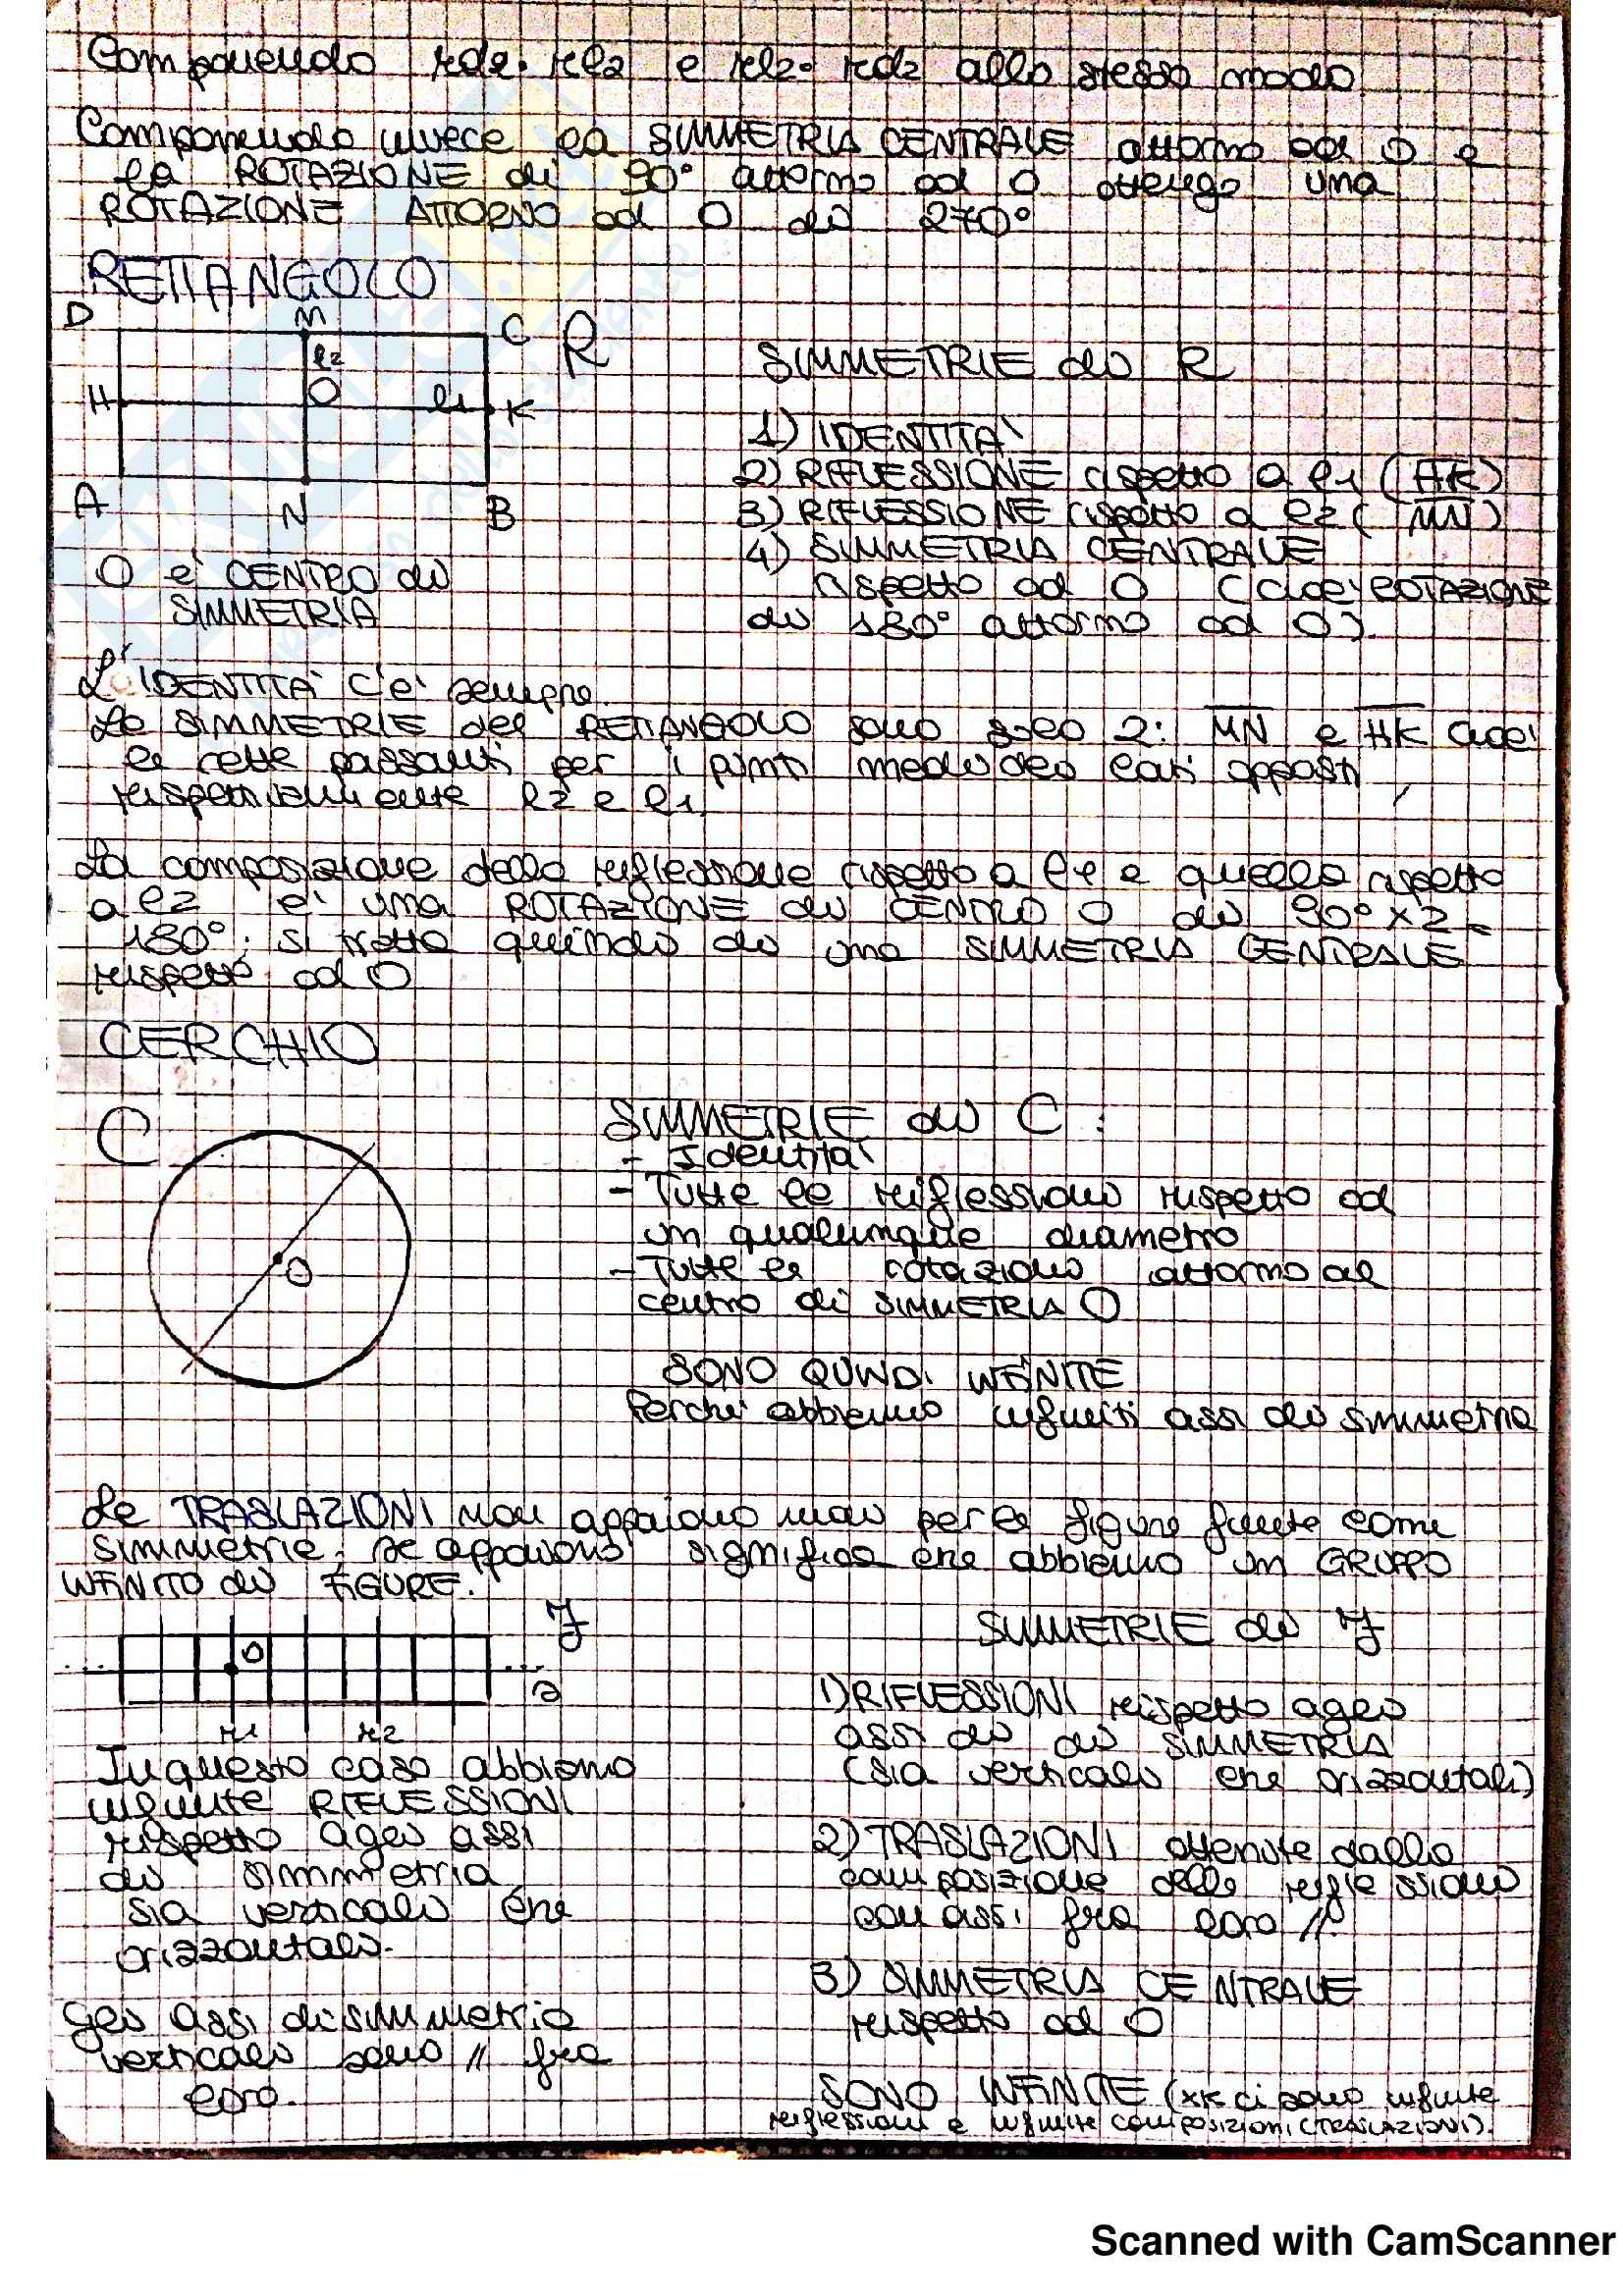 Componendo rd2∘rl2 e rl2∘rd2 allo stesso modo
Componendo invece la SIMMETRIA CENTRALE attorno ad O e
la ROTAZIONE di 90° attorno ad O ottengo una
ROTAZIONE ATTORNO ad O di 270°
RETTANGOLO
D M C R
l2
H O l1 K
A N B
O è CENTRO di
SIMMETRIA
SIMMETRIE di R
1) IDENTITA'
2) RIFLESSIONE rispetto a l1 (HK)
3) RIFLESSIONE rispetto a l2 (MN)
4) SIMMETRIA CENTRALE
rispetto ad O (cioè ROTAZIONE
di 180° attorno ad O).
L'IDENTITA' c'è sempre.
Le SIMMETRIE del RETTANGOLO sono solo 2: MN e HK cioè
le rette passanti per i punti medi dei lati opposti
rispettivamente l2 e l1.
La composizione della riflessione rispetto a l1 e quella rispetto
a l2 è una ROTAZIONE di CENTRO O di 90° x 2 =
180°. Si tratta quindi di una SIMMETRIA CENTRALE
rispetto ad O
CERCHIO
C
O
SIMMETRIE di C :
- Identità
- Tutte le riflessioni rispetto ad
un qualunque diametro
- Tutte le rotazioni attorno al
centro di SIMMETRIA O
SONO QUINDI INFINITE
Perché abbiamo infiniti assi di simmetria
Le TRASLAZIONI non appaiono mai per le figure finite come
simmetrie; se appaiono significa che abbiamo un GRUPPO
INFINITO di FIGURE.
O
... ...
a
r1 r2
In questo caso abbiamo
infinite RIFLESSIONI
rispetto agli assi
di simmetria
sia verticali che
orizzontali.
Gli assi di simmetria
verticali sono // fra
loro.
SIMMETRIE di
1) RIFLESSIONI rispetto agli
assi di di SIMMETRIA
(sia verticali che orizzontali)
2) TRASLAZIONI ottenute dalla
composizione delle riflessioni
con assi fra loro //.
3) SIMMETRIA CENTRALE
rispetto ad O
SONO INFINITE (xk ci sono infinite
riflessioni e infinite composizioni (TRASLAZIONI).
Scanned with CamScanner